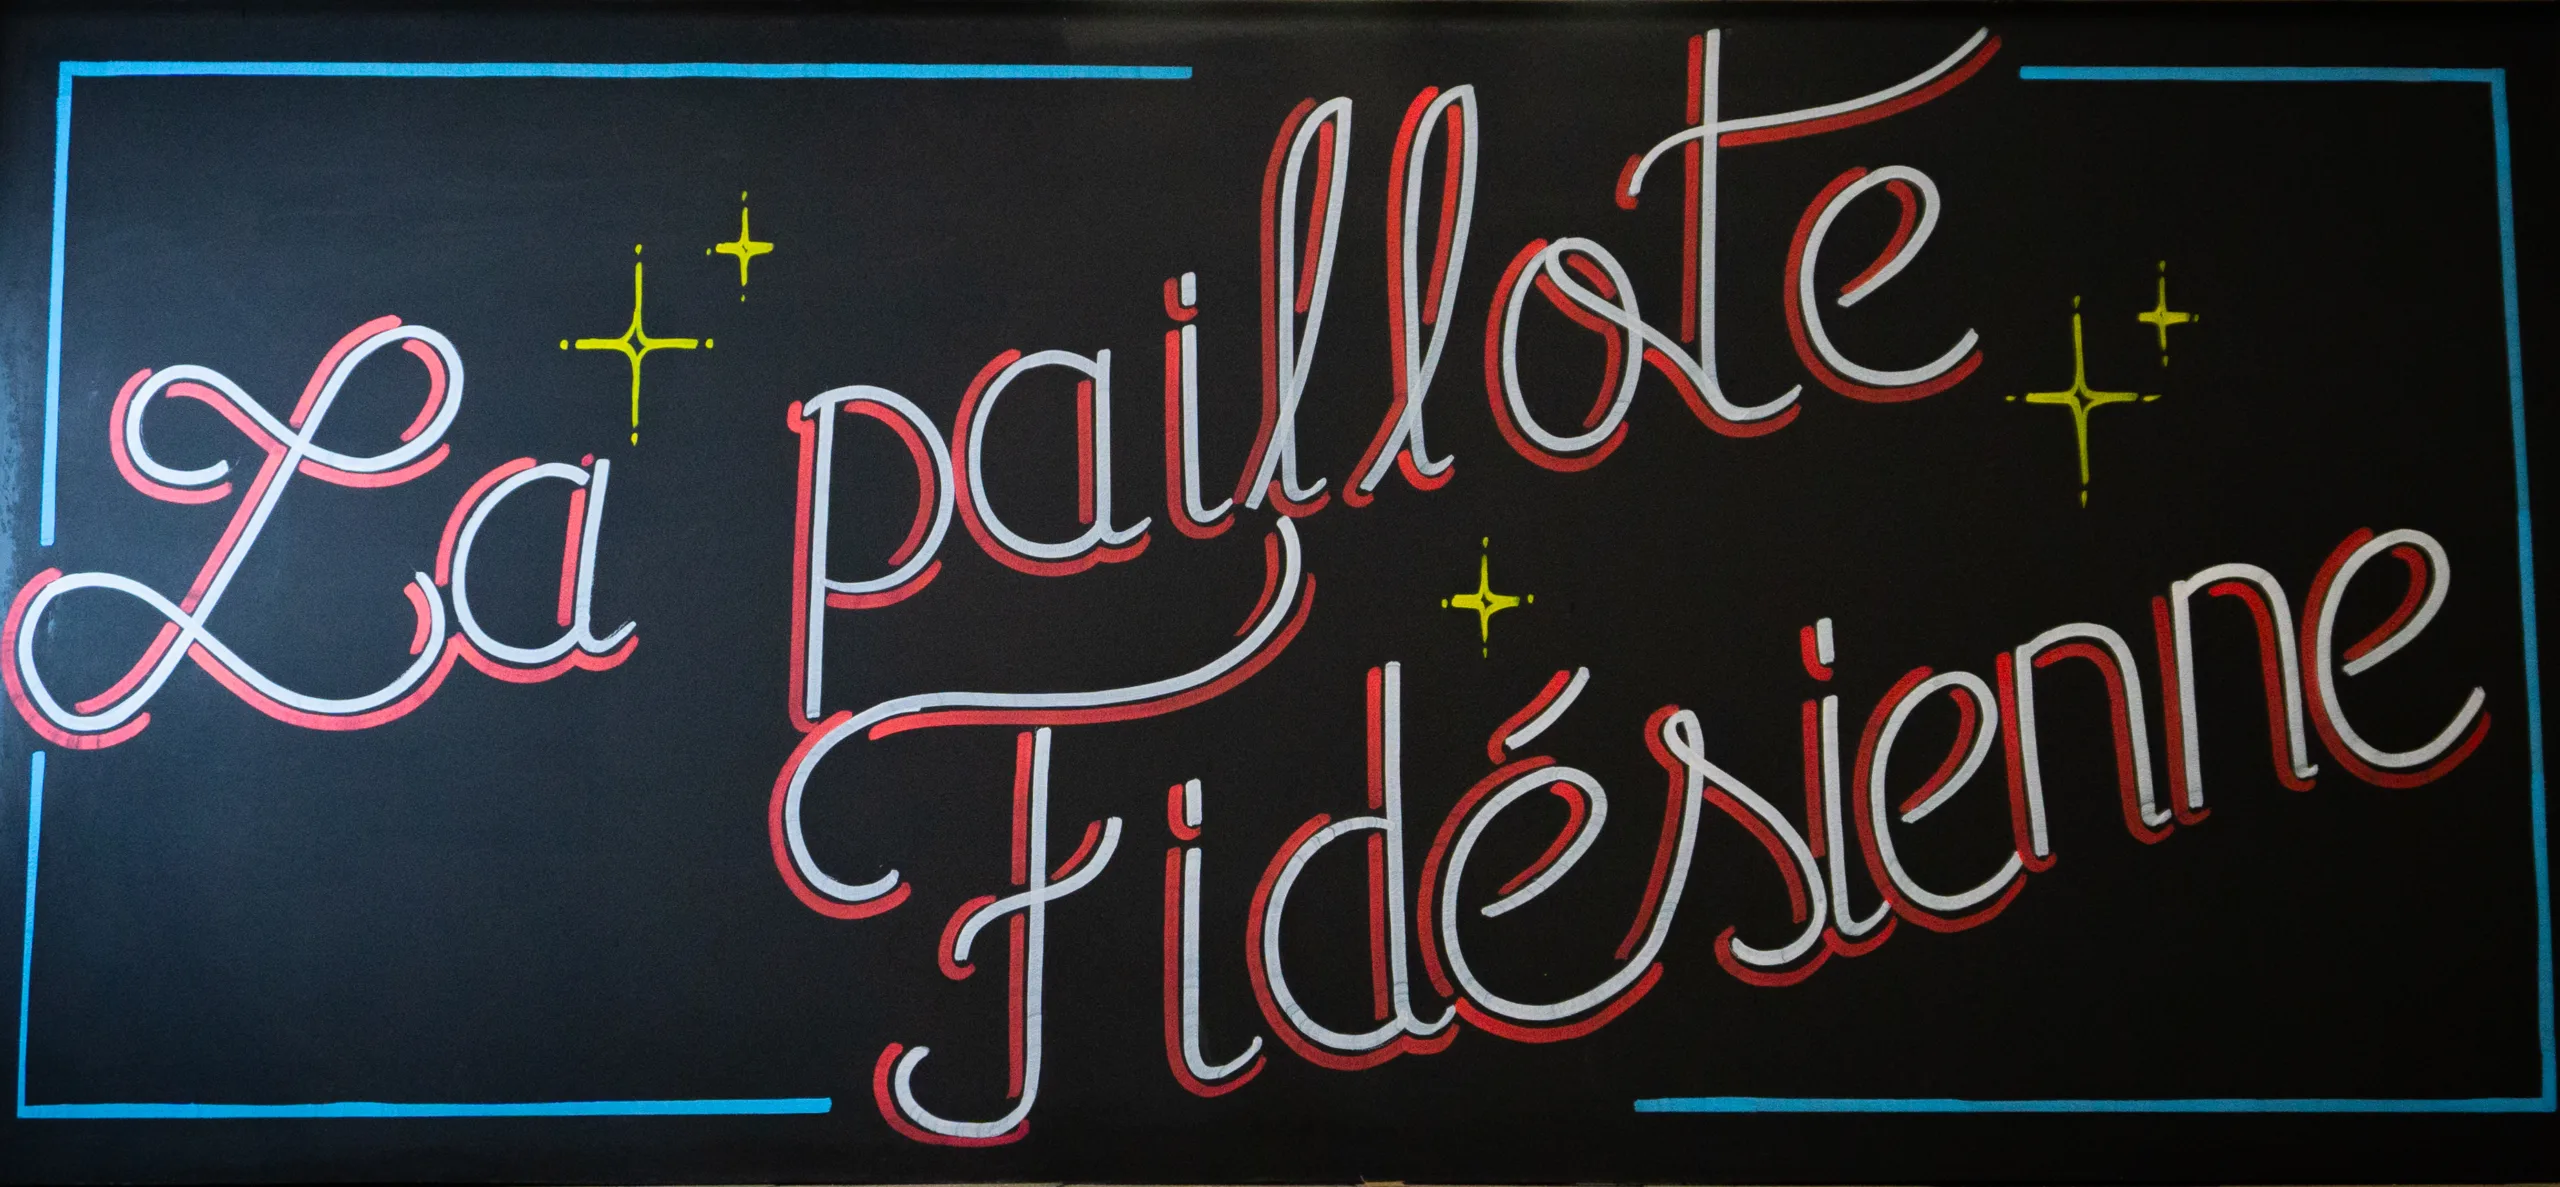 La paillote
Fidésienne